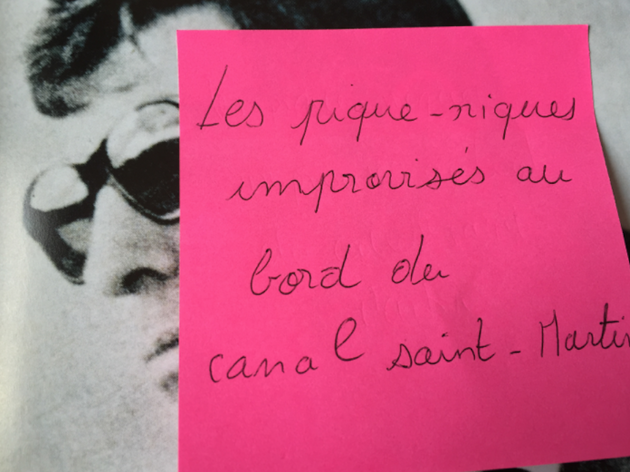 Les pique-niques
improvisés au
bord du
canal saint-Martin